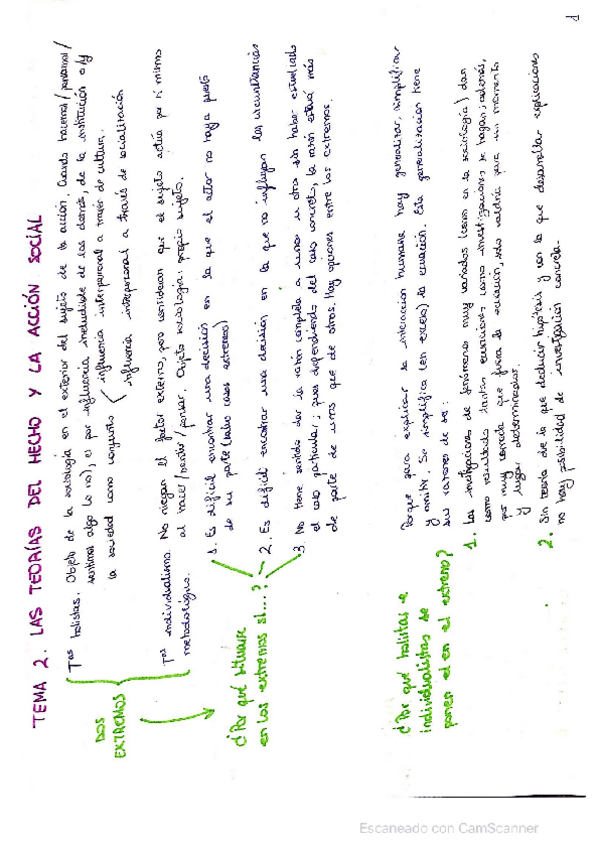 1
TEMA 2. LAS TEORÍAS DEL HECHO Y LA ACCIÓN SOCIAL
DOS
EXTREMOS
Tas holistas. Objeto de la sociología en el exterior del sujeto de la acción. Cuando hacemos/pensamos/
sentimos algo (o no), es por influencia ineludible de los demás, de la institución o/y
la sociedad como conjunto
influencia interpersonal a través de cultura.
influencia interpersonal a través de socialización
Tas individualismo. No niegan el factor externo, pero consideran que el sujeto actúa por sí mismo
metodológico. al hacer/sentir/pensar. Objeto sociología: propio sujeto.
¿Por qué situarse
en los extremos si...?
1. Es difícil encontrar una decisión en la que el actor no haya puesto
de su parte (salvo casos extremos)
2. Es difícil encontrar una decisión en la que no influyan las circunstancias
3. No tiene sentido dar la razón completa a unos u otros sin haber estudiado
el caso particular; pues dependiendo del caso concreto, la razón estará más
de parte de unos que de otros. Hay opciones entre los extremos.
¿Por qué holistas e
individualistas se
ponen el en el extremo?
Porque para explicar la interacción humana hay generalizar, simplificar
y omitir. Se simplifica (en exceso) la ecuación. Esta generalización tiene
sus razones de ser:
1. Las investigaciones de fenómenos muy variados (como en la sociología) dan
como resultado tantas ecuaciones como investigaciones se hagan; además,
por muy cerrada que fuera la ecuación, solo valdría para un momento
y lugar determinados.
2. Sin teoría de la que deducir hipótesis y con la que desarrollar explicaciones
no hay posibilidad de investigación concreta.
Escaneado con CamScanner